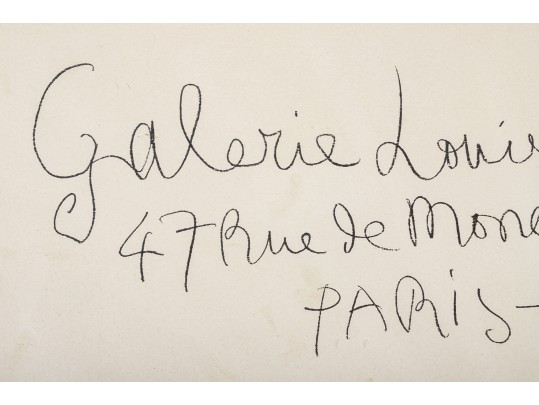 Galerie Loui
47 Rue de Mon
PARIS-